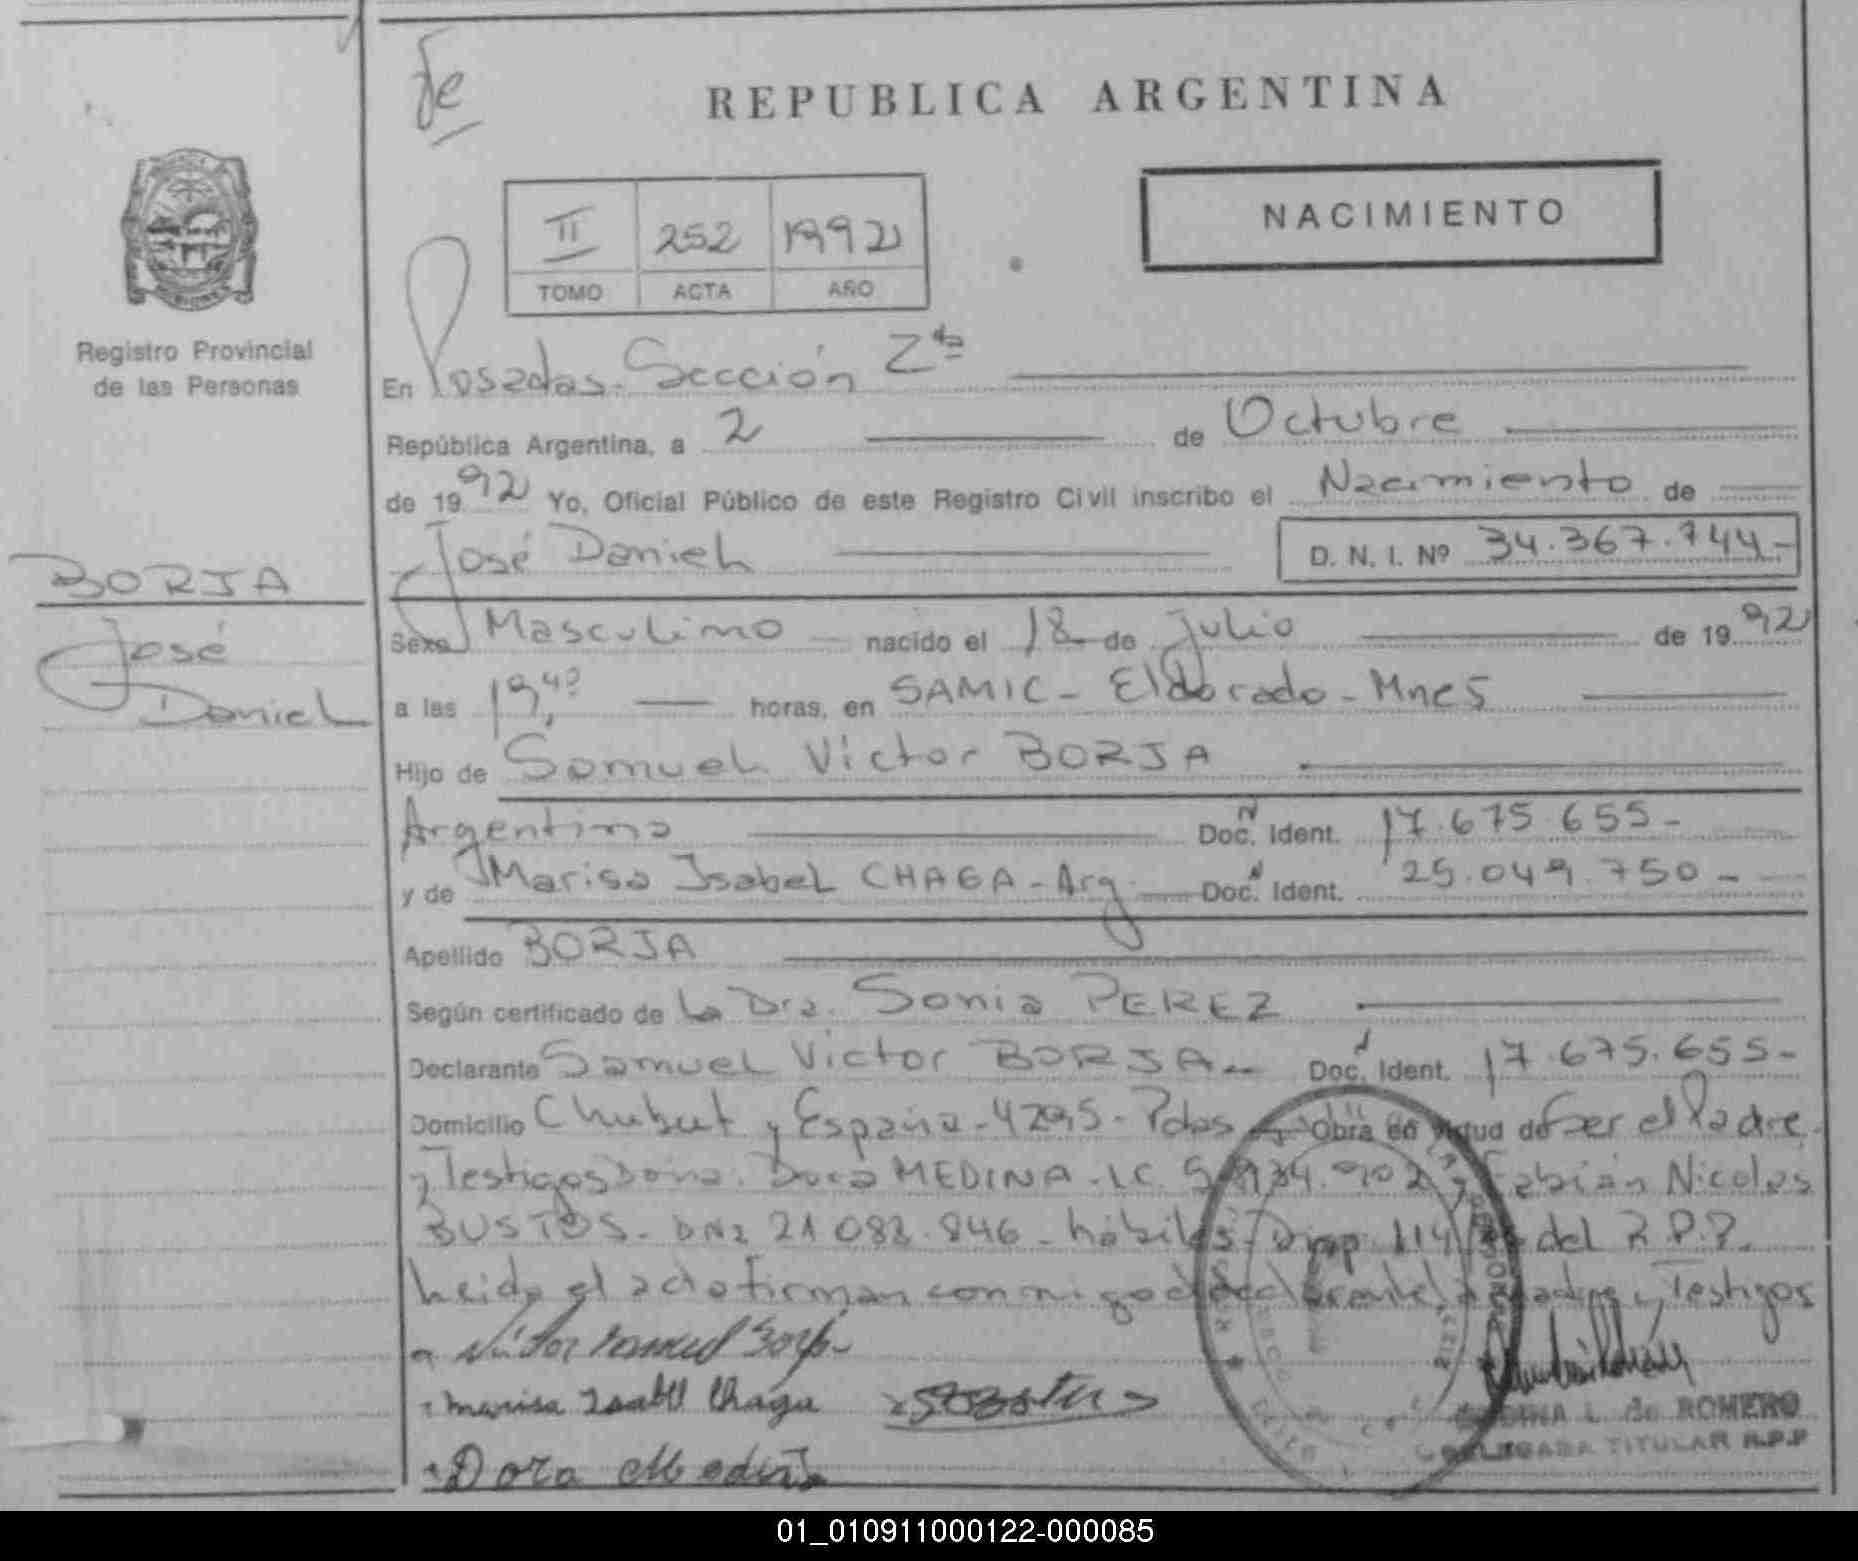 Je
REPUBLICA ARGENTINA
II 252 1992
TOMO ACTA AÑO
NACIMIENTO
MISIONES
Registro Provincial
de las Personas
En Posadas-Sección 2da
República Argentina, a 2 de Octubre
de 1992 Yo, Oficial Público de este Registro Civil inscribo el Nacimiento de
José Daniel D. N. I. Nº 34.367.744-
BORJA
José
Daniel
Sexo Masculino nacido el 18 de julio de 1992
a las 19,40 horas, en SAMIC- Eldorado-Mnes
Hijo de Samuel Víctor BORJA
Argentino Doc. Ident. 17.675.655-
y de Marisa Isabel CHAGA-Arg. Doc. Ident. 25.049.750-
Apellido BORJA
Según certificado de La Dra. Sonia PEREZ
Declarante Samuel Victor BORJA- Doc. Ident. 17.675.655-
Domicilio Chubut y España-4295-Pdas Obra en virtud de Ser el Padre
y Testigos Doña. Dora MEDINA-LC. y Fabián Nicolas
BUSTOS- DNI 21.083.846-hábiles-Disp. 114 del R.P.P.
Leída el acta firman conmigo declarante, y Testigos
Víctor Samuel Borja
Marisa Isabel Chaga
Dora Medina
L. de ROMERO
DELEGADA TITULAR R.P.P
01_010911000122-000085